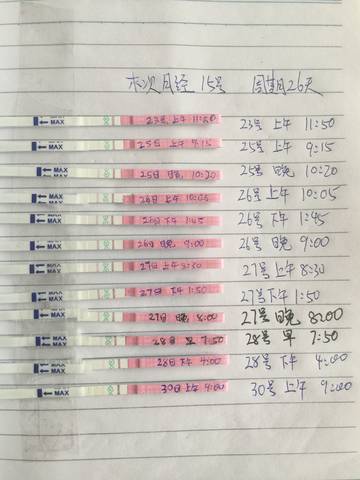 本次月经 15号 周期26天
MAX 23号 上午 11:50 23号 上午 11:50
MAX 25日 上午 9:15 25号 上午 9:15
MAX 25日 晚 10:20 25号 晚 10:20
MAX 26日 上午 10:05 26号 上午 10:05
MAX 26日 下午 1:45 26号 下午 1:45
MAX 26日 晚 9:00 26号 晚 9:00
MAX 27日 上午 8:30 27号 上午 8:30
MAX 27日 下午 1:50 27号 下午 1:50
MAX 27日 晚 8:00 27号 晚 8:00
MAX 28日 早 7:50 28号 早 7:50
MAX 28日 下午 4:00 28号 下午 4:00
MAX 30日 上午 9:00 30号 上午 9:00